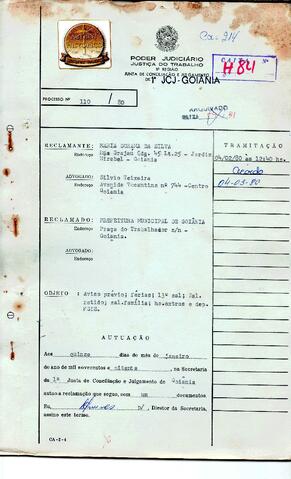 Cx. 214
PODER JUDICIÁRIO
JUSTIÇA DO TRABALHO
JUNTA DE CONCILIAÇÃO E JULGAMENTO
DE 1ª JCJ-GOIÂNIA
Nº
PROCESSO Nº 110 / 80
ARQUIVADO
RECLAMANTE:
Endereço
Goiania
ADVOGADO: Silvio Teixeira
Endereço Avenida Tocantins nº 744 - Centro
Goiania
RECLAMADO: PREFEITURA MUNICIPAL DE GOIÂNIA
Endereço Praça do Trabalhador s/n -
Goiania.
ADVOGADO:
Endereço
OBJETO: Aviso prévio; férias; 13º sal; Sal.
retido; sal.família; hs.extras e dep.
FGTS.
TRAMITAÇÃO
04/02/80 às 12:40 hs.
acordo
04-03-80
AUTUAÇÃO
Aos quinze dias do mês de janeiro
do ano de mil novecentos e oitenta, na Secretaria
da 1ª Junta de Conciliação e Julgamento de Goiania
autuo a reclamação que segue, com documentos.
Eu, Diretor da Secretaria,
assino este termo.
CA-2-4